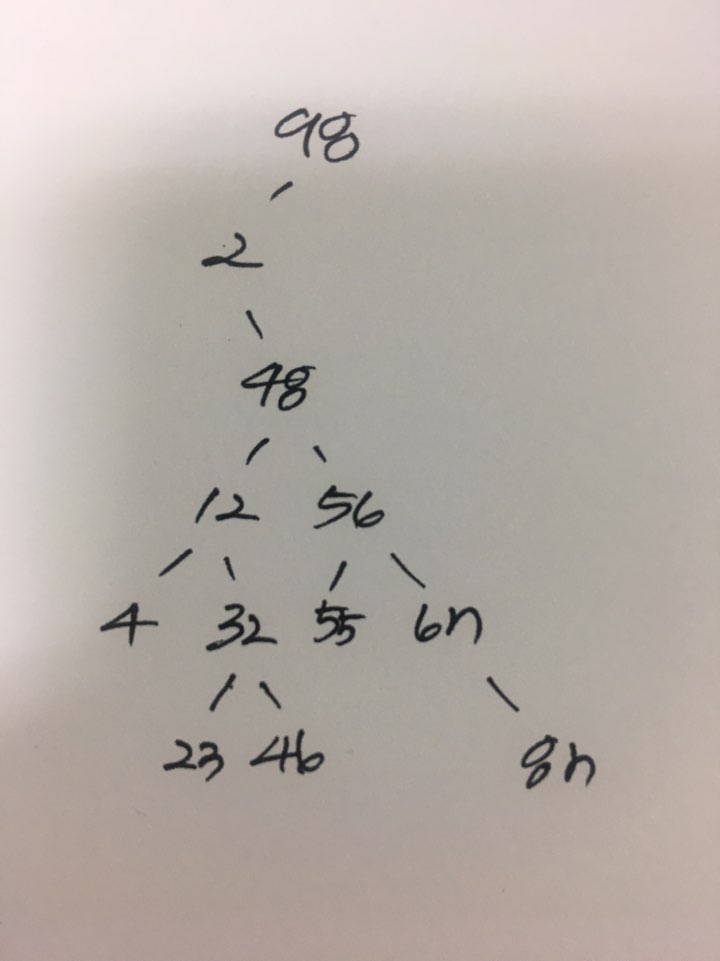 98
2
48
12 56
4 32 55 67
23 46 87